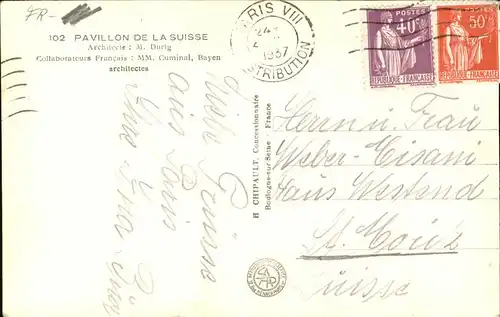 FR-
102 PAVILLON DE LA SUISSE
Architecte : M. Durig
Collaborateurs Français : MM. Cuminal, Bayen
architectes
PARIS VIII
24
1937
DISTRIBUTION
POSTES
40c
REPUBLIQUE FRANÇAISE
POSTES
50c
REPUBLIQUE FRANÇAISE
Liebe Grüsse
aus Paris
H CHIPAULT, Concessionnaire
Boulogne-sur-Seine - France
Herrn u. Frau
Weber-Cisani
Haus Westend
St. Moritz
Suisse